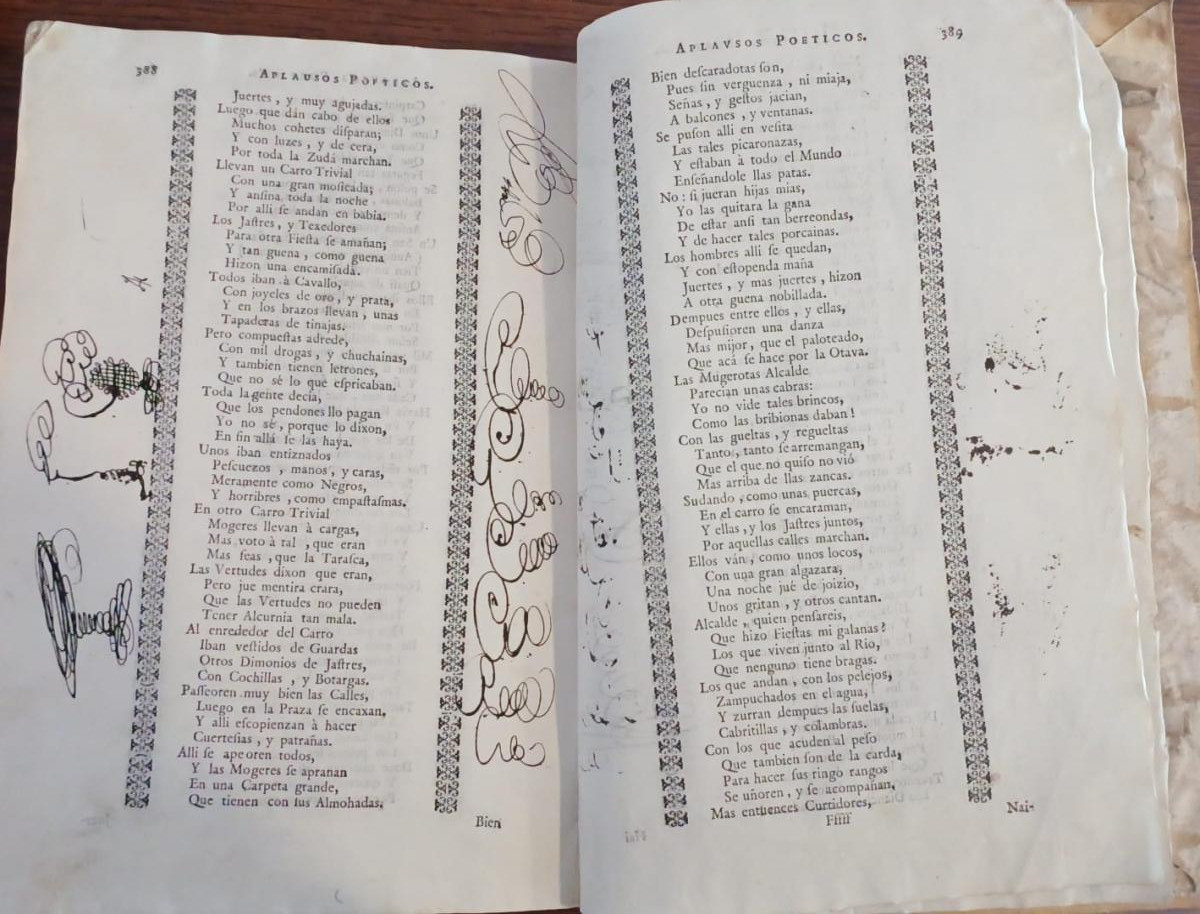 388
APLAUSOS POETICOS.
Juertes, y muy agujadas.
Luego que dán cabo de ellos
Muchos cohetes disparan;
Y con luzes, y de cera,
Por toda la Zudá marchan.
Llevan un Carro Trivial
Con una gran mosicada;
Y ansina toda la noche
Por alli se andan en babia.
Los Jastres, y Texedores
Para otra Fiesta se amañan;
Y tan guena, como guena
Hizon una encamisada.
Todos iban à Cavallo,
Con joyeles de oro, y prata,
Y en los brazos llevan, unas
Tapaderas de tinajas.
Pero compuestas adrede,
Con mil drogas, y chuchainas,
Y tambien tienen letrones,
Que no sé lo que espricaban.
Toda la gente decia,
Que los pendones llo pagan
Yo no sé, porque lo dixon,
En fin allá se las haya.
Unos iban entiznados
Pescuezos, manos, y caras,
Meramente como Negros,
Y horribres, como empastasmas.
En otro Carro Trivial
Mogeres llevan à cargas,
Mas voto à tal, que eran
Mas feas, que la Tarasca,
Las Vertudes dixon que eran,
Pero jue mentira crara,
Que las Vertudes no pueden
Tener Alcurnia tan mala.
Al enrededor del Carro
Iban vestidos de Guardas
Otros Dimonios de Jastres,
Con Cochillas, y Botargas.
Passeoren muy bien las Calles,
Luego en la Praza se encaxan,
Y alli escopienzan à hacer
Cuertesias, y patrañas.
Alli se apeoren todos,
Y las Mogeres se apranan
En una Carpeta grande,
Que tienen con sus Almohadas.
Bien
APLAVSOS POETICOS.
389
Bien descaradotas son,
Pues sin verguenza, ni miaja,
Señas, y gestos jacian,
A balcones, y ventanas.
Se puson alli en vesita
Las tales picaronazas,
Y estaban à todo el Mundo
Enseñandole llas patas.
No: si jueran hijas mias,
Yo las quitara la gana
De estar ansi tan berreondas,
Y de hacer tales porcainas.
Los hombres alli se quedan,
Y con estopenda maña
Juertes, y mas juertes, hizon
A otra guena nobillada.
Dempues entre ellos, y ellas,
Despusioren una danza
Mas mijor, que el paloteado,
Que acá se hace por la Otava.
Las Mugerotas Alcalde
Parecian unas cabras:
Yo no vide tales brincos,
Como las bribionas daban!
Con las gueltas, y regueltas
Tanto, tanto se arremangan,
Que el que no quiso no vió
Mas arriba de llas zancas.
Sudando, como unas puercas,
En el carro se encaraman,
Y ellas, y los Jastres juntos,
Por aquellas calles marchan.
Ellos ván, como unos locos,
Con una gran algazara,
Una noche jué de joizio,
Unos gritan, y otros cantan.
Alcalde, quien pensareis,
Que hizo Fiestas mi galanas?
Los que viven junto al Rio,
Que nenguno tiene bragas.
Los que andan, con los pelejos,
Zampuchados en el agua,
Y zurran dempues las suelas,
Cabritillas, y colambras.
Con los que acuden al peso
Que tambien son de la carda,
Para hacer sus ringo rangos
Se uñoren, y se acompañan,
Mas entuences Curtidores,
Fffff
Nai-